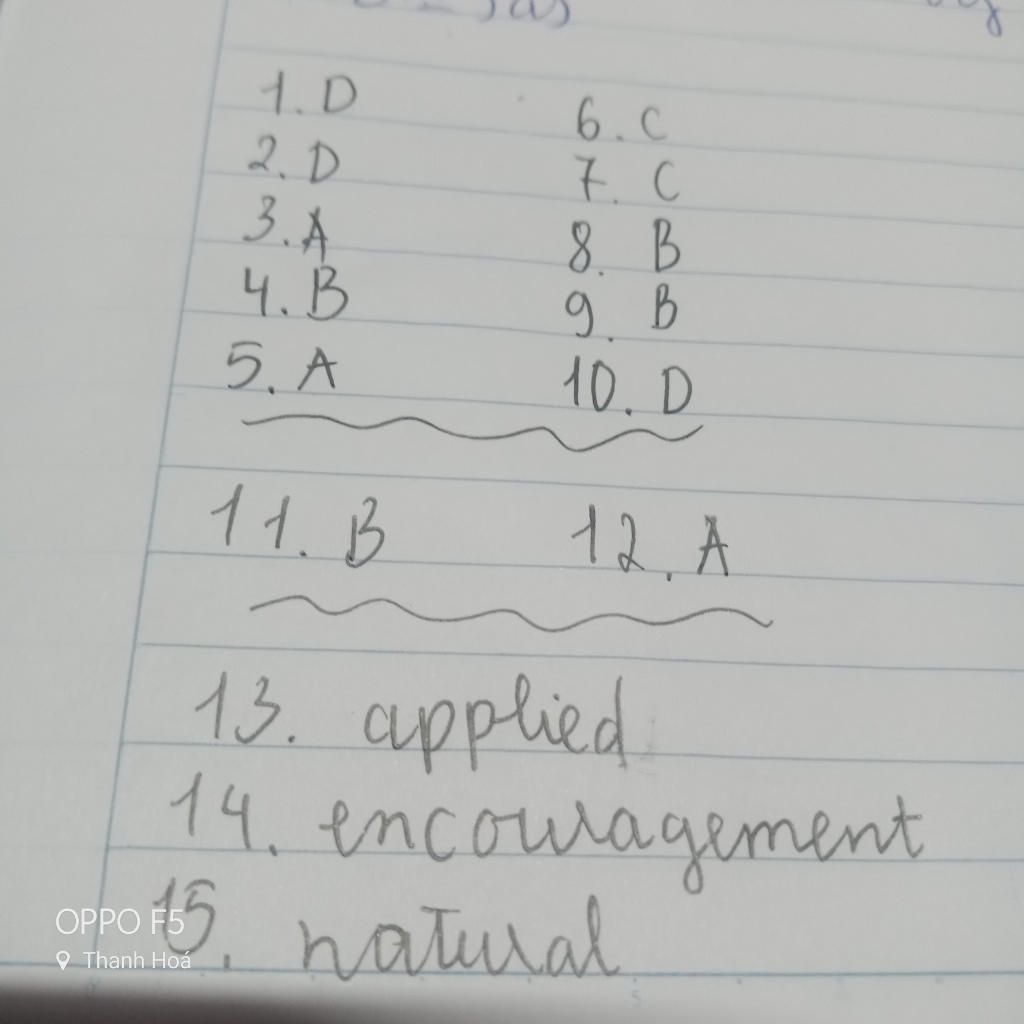 1. D
6. C
2. D
7. C
3. A
8. B
4. B
9. B
5. A
10. D
11. B
12. A
13. applied
14. encouragement
15. natural
OPPO F5
Thanh Hoá